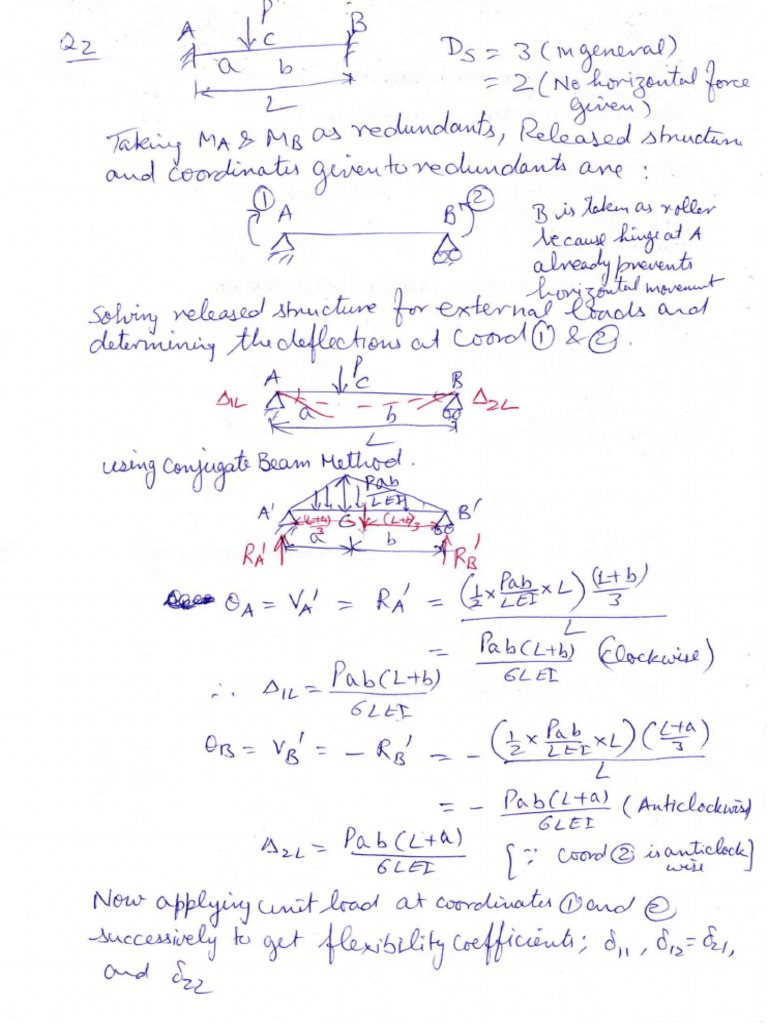 Q2
A P B
C
a b
L
Ds = 3 (in general)
= 2 (No horizontal force
given)
Taking MA & MB as redundants, Released structure
and coordinates given to redundants are :
① A B ②
B is taken as roller
because hinge at A
already prevents
horizontal movement
Solving released structure for external loads and
determining the deflections at Coord ① & ②.
A P C B
Δ1L a b Δ2L
L
using Conjugate Beam Method.
Pab/LEI
A' (L+a)/3 G (L+b)/3 B'
a b
RA' RB'
θA = VA' = RA' = (1/2 × Pab/LEI × L) (L+b)/3 / L
= Pab(L+b)/6LEI (Clockwise)
∴ Δ1L = Pab(L+b)/6LEI
θB = VB' = - RB' = - (1/2 × Pab/LEI × L) (L+a/3) / L
= - Pab(L+a)/6LEI (Anticlockwise)
Δ2L = Pab(L+a)/6LEI [∵ Coord ② is anticlock
wise]
Now applying unit load at coordinates ① and ②
successively to get flexibility coefficients; δ11, δ12=δ21,
and δ22